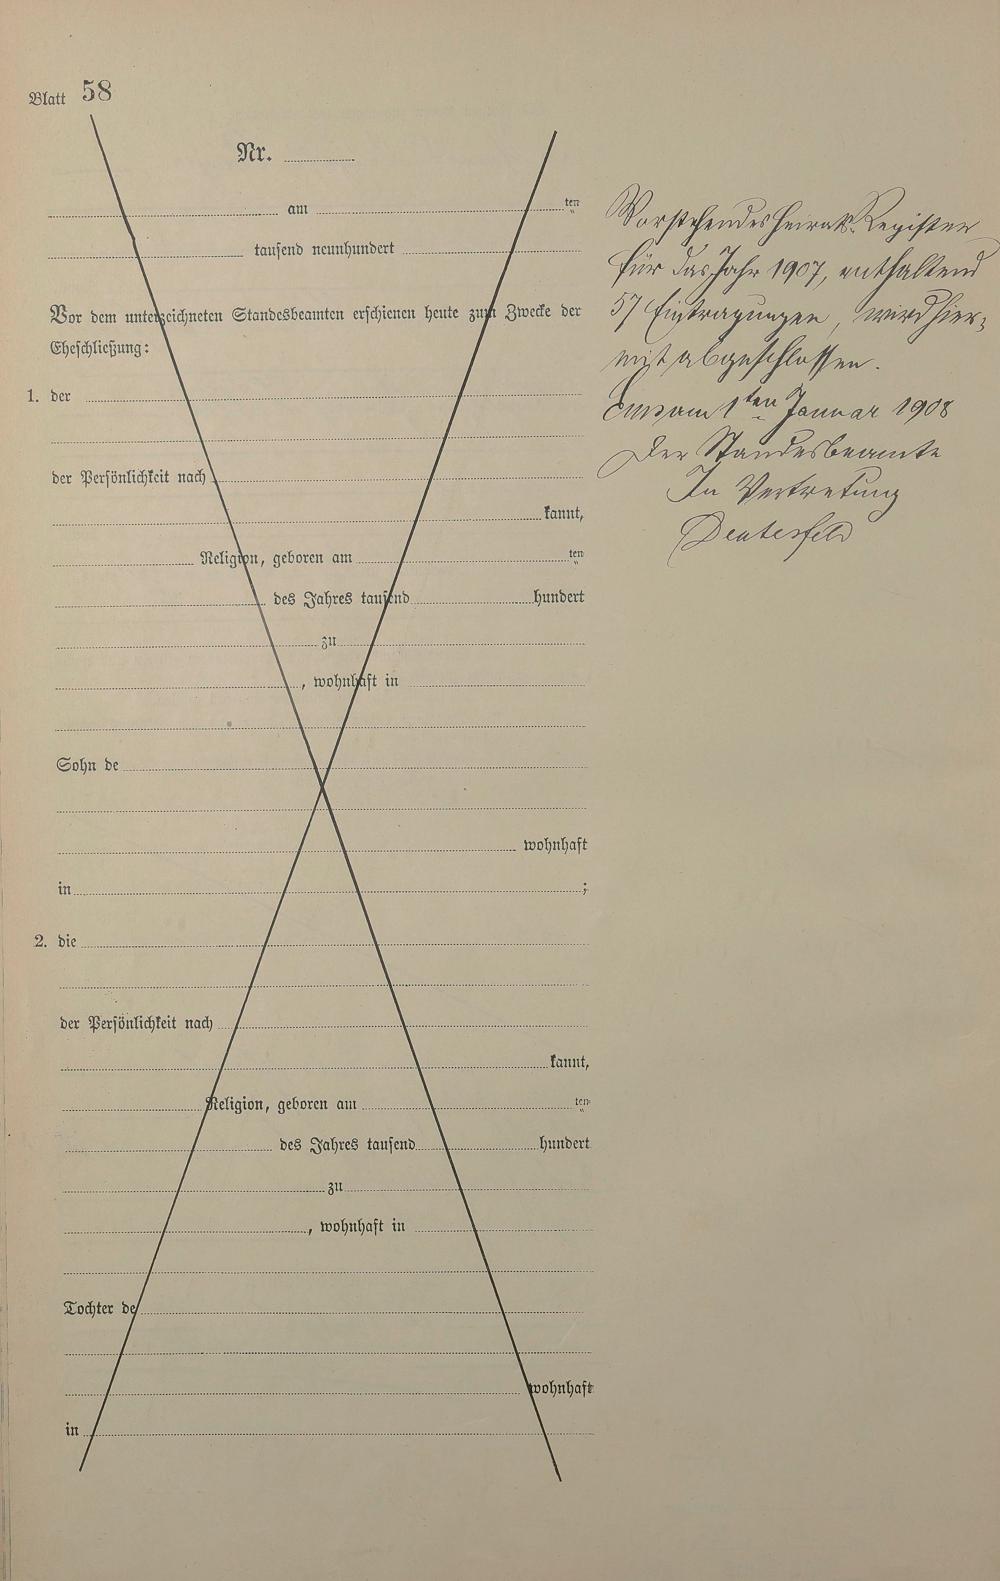 Blatt 58
Nr.
am ten
tausend neunhundert
Vor dem unterzeichneten Standesbeamten erschienen heute zum Zwecke der
Eheschließung:
1. der
der Persönlichkeit nach
kannt,
Religion, geboren am ten
des Jahres tausend hundert
zu
, wohnhaft in
Sohn de
wohnhaft
in ;
2. die
der Persönlichkeit nach
kannt,
Religion, geboren am ten
des Jahres tausend hundert
zu
, wohnhaft in
Tochter de
wohnhaft
in
Vorstehendes Heirats-Register
für das Jahr 1907, enthaltend
57 Eintragungen, wird hier-
mit abgeschlossen.
Ems am 1ten Januar 1908
Der Standesbeamte
In Vertretung